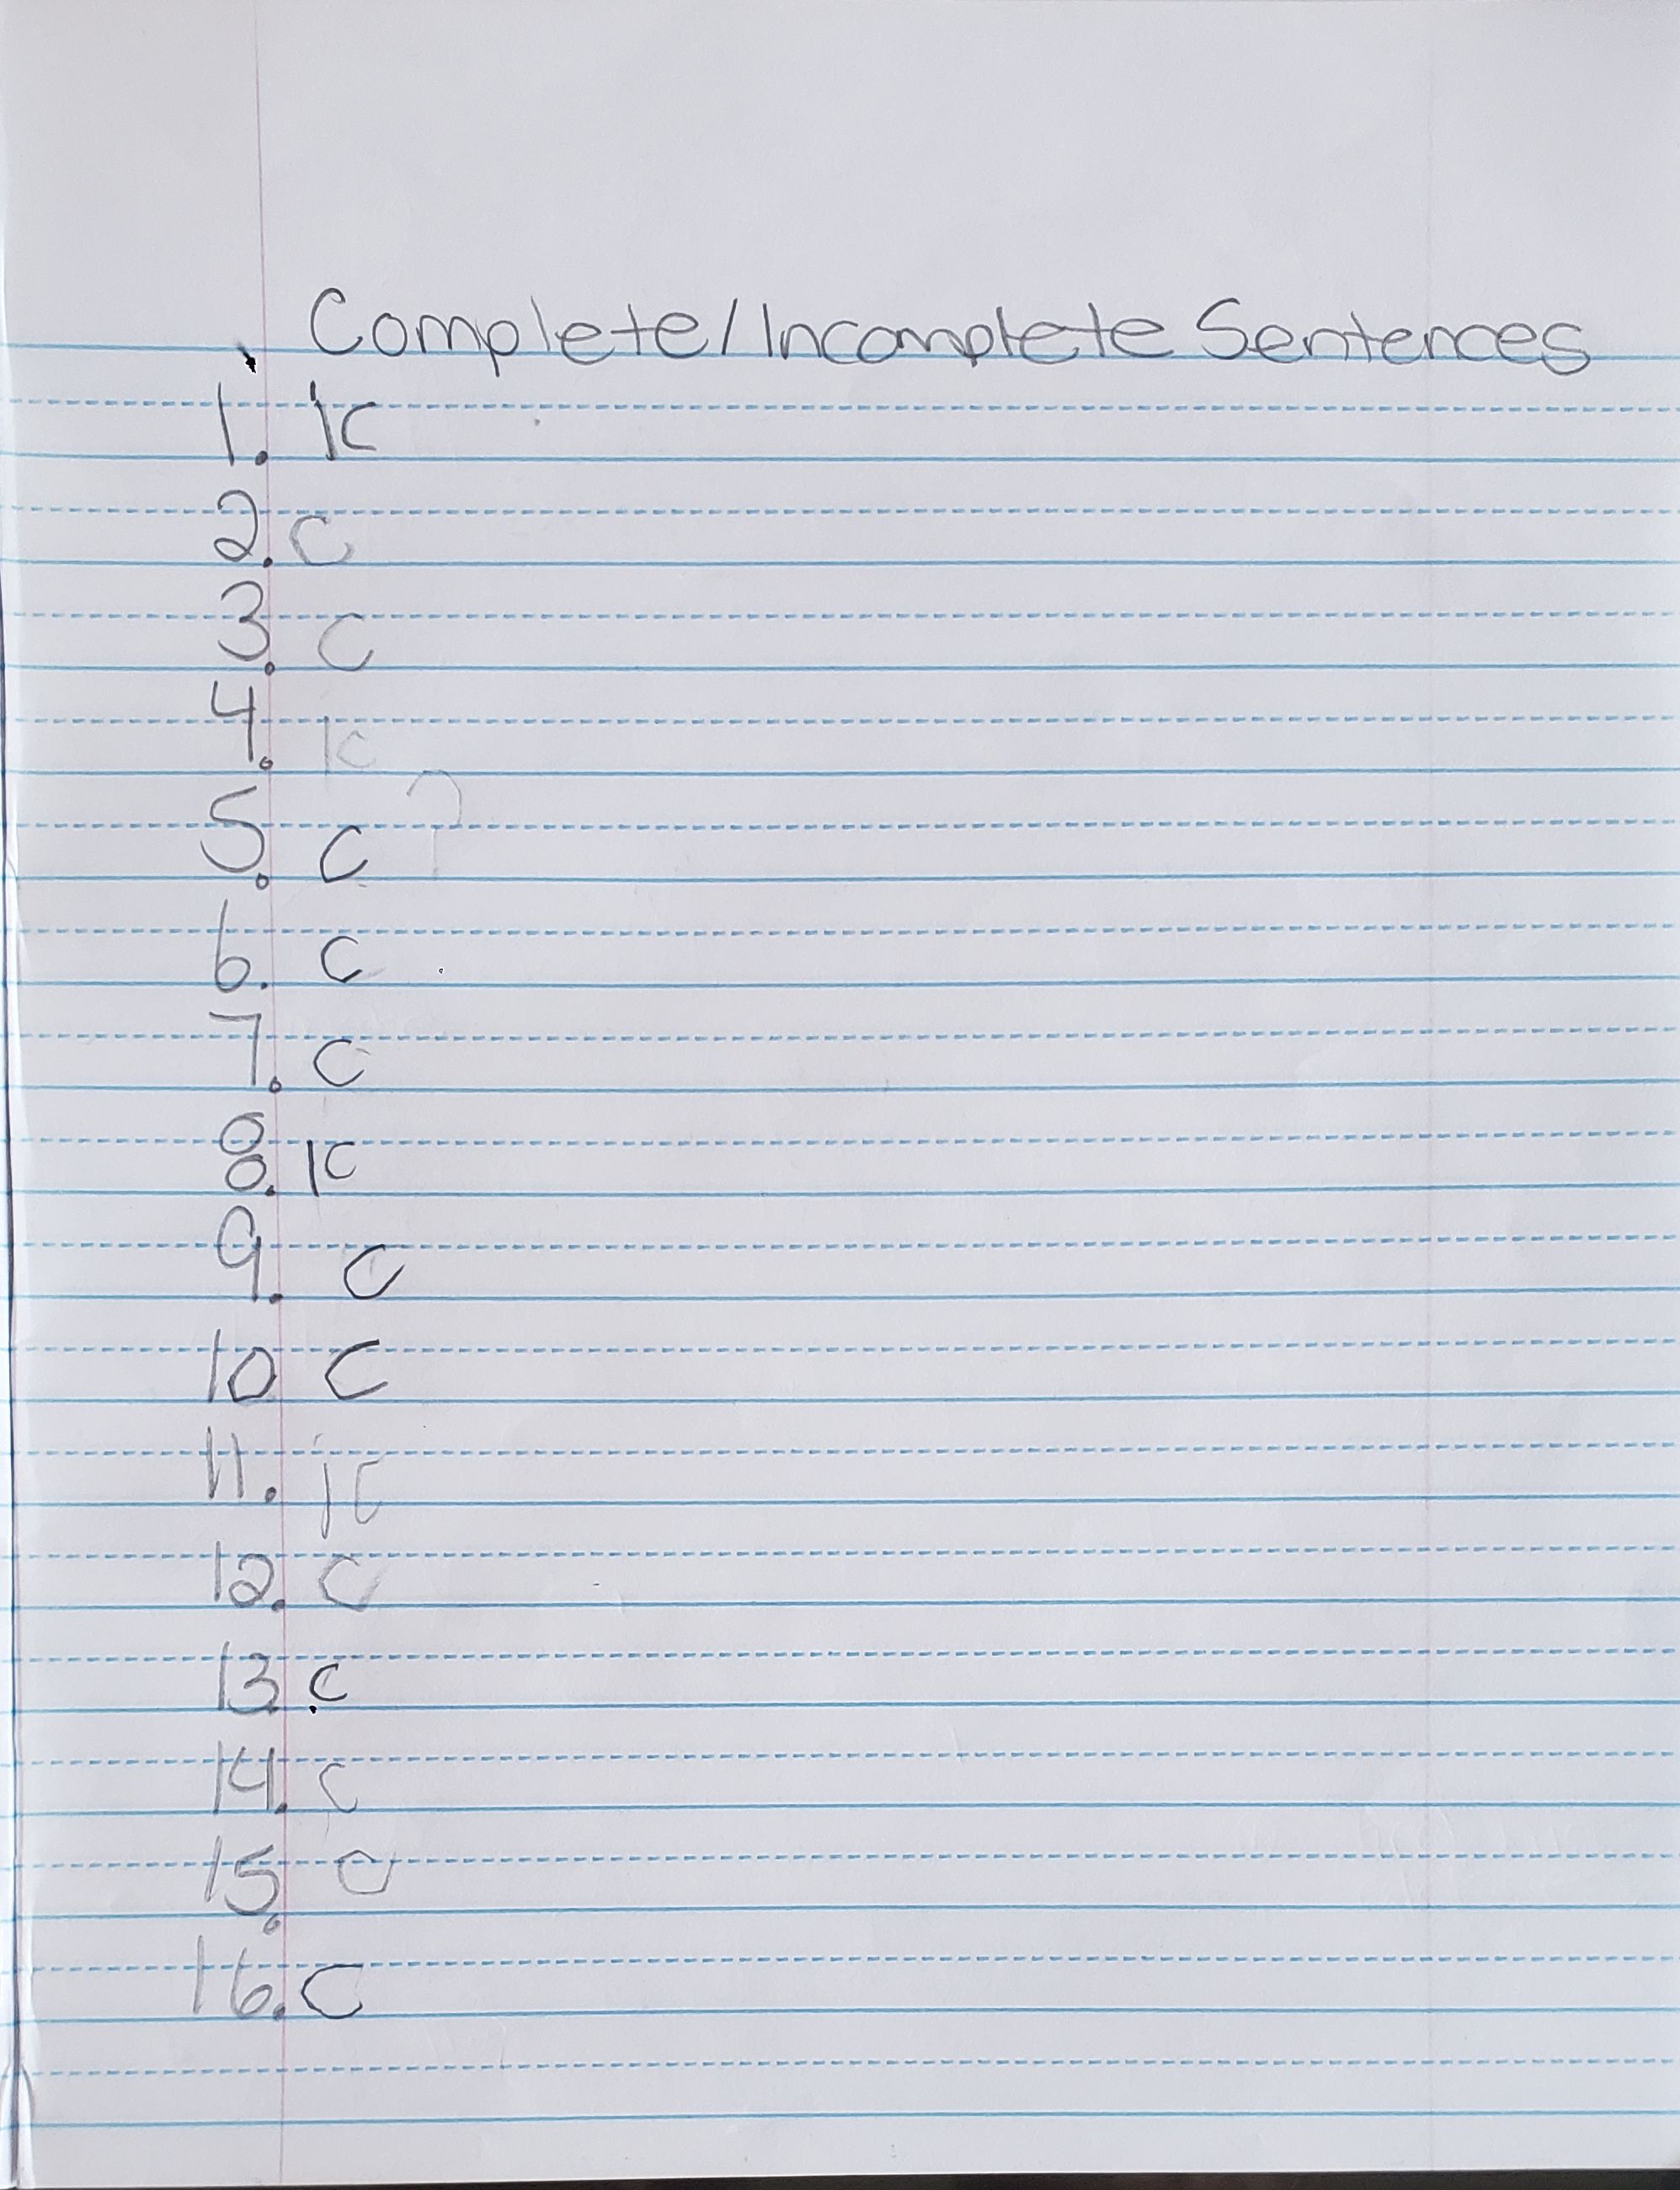 Complete/Incomplete Sentences
1. IC
2. C
3. C
4. IC
5. C ?
6. C
7. C
8. IC
9. C
10. C
11. IC
12. C
13. C
14. C
15. C
16. C